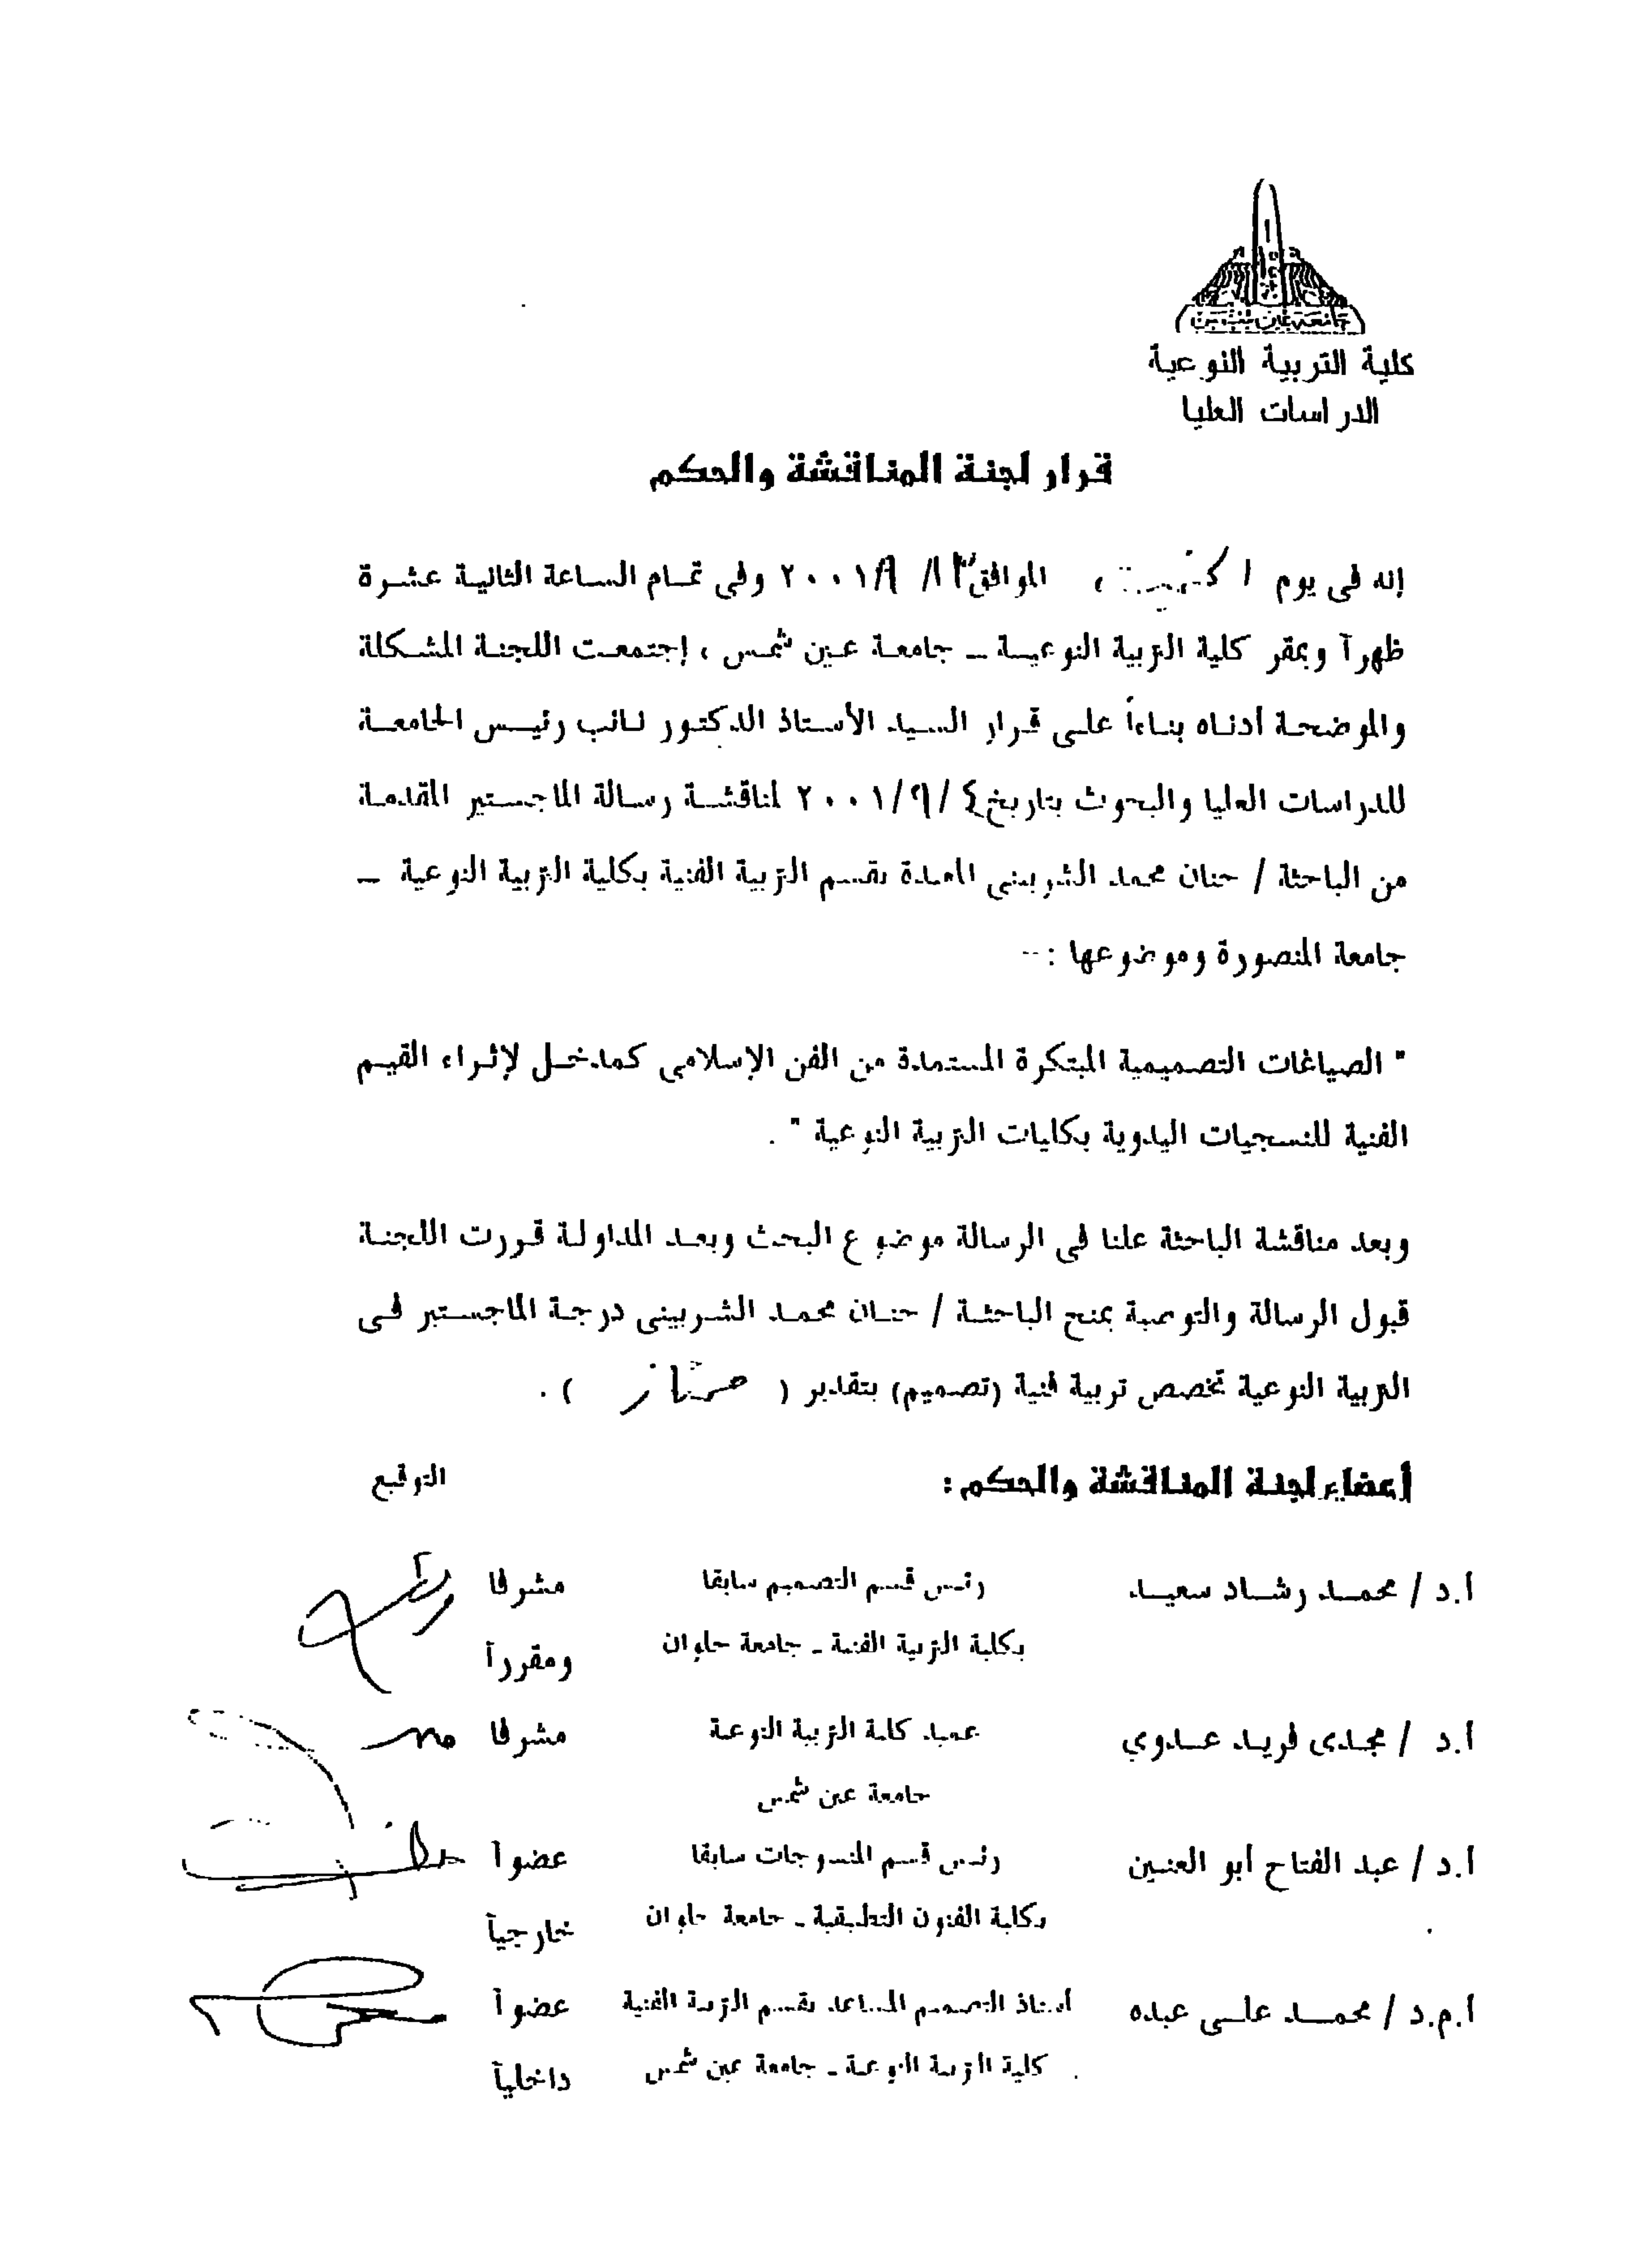 جامعة عين شمس
كلية التربية النوعية
الدراسات العليا
قرار لجنة المناقشة والحكم
إنه فى يوم الموافق / ٩ / ٢٠٠١ وفى تمام الساعة الثانية عشرة
ظهراً وبمقر كلية التربية النوعية – جامعة عين شمس ، إجتمعت اللجنة المشكلة
والموضحة أدناه بناءاً على قرار السيد الأستاذ الدكتور نائب رئيس الجامعة
للدراسات العليا والبحوث بتاريخ ٤ / ٩ / ٢٠٠١ لمناقشة رسالة الماجستير المقدمة
من الباحثة / حنان محمد الشربينى المعيدة بقسم التربية الفنية بكلية التربية النوعية –
جامعة المنصورة وموضوعها :--
" الصياغات التصميمية المبتكرة المستمدة من الفن الإسلامى كمدخل لإثراء القيم
الفنية للنسجيات اليدوية بكليات التربية النوعية " .
وبعد مناقشة الباحثة علنا فى الرسالة موضوع البحث وبعد المداولة قررت اللجنة
قبول الرسالة والتوصية بمنح الباحثة / حنان محمد الشربينى درجة الماجستير فى
التربية النوعية تخصص تربية فنية (تصميم) بتقدير ( ممتاز ) .
أعضاء لجنة المناقشة والحكم : التوقيع
أ.د / محمد رشاد سعيد رئيس قسم التصميم سابقا مشرفا
بكلية التربية الفنية - جامعة حلوان ومقرراً
أ.د / مجدى فريد عدوي عميد كلية التربية النوعية مشرفا
جامعة عين شمس
أ.د / عبد الفتاح أبو العنين رئيس قسم المنسوجات سابقا عضواً
بكلية الفنون التطبيقية - جامعة حلوان خارجياً
أ.م.د / محمد على عبده أستاذ التصميم المساعد بقسم التربية الفنية عضواً
كلية التربية النوعية - جامعة عين شمس داخلياً